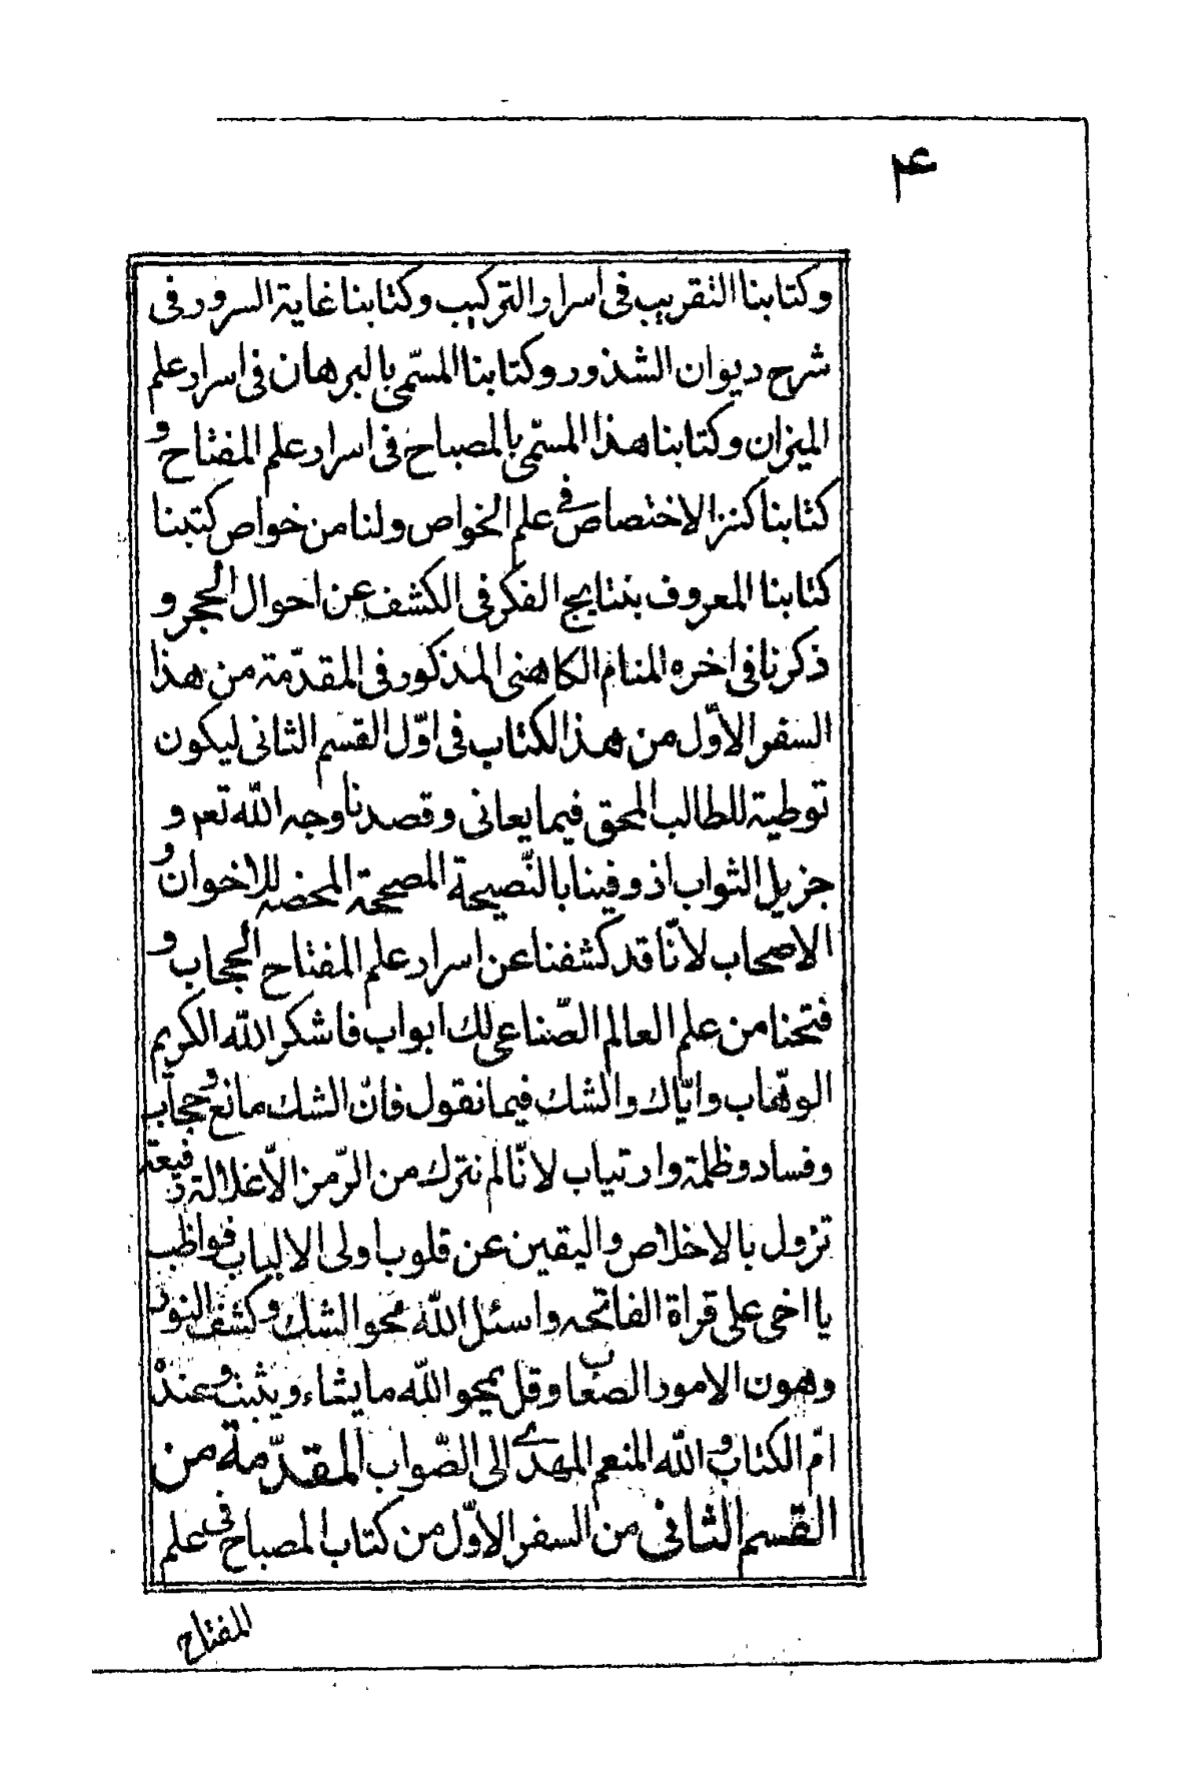 ۴
وكتابنا التقريب فى اسرار التركيب وكتابنا غاية السرور فى
شرح ديوان الشذور وكتابنا المسّمى بالبرهان فى اسرار علم
الميزان وكتابنا هذا المسّمى بالمصباح فى اسرار علم المفتاح و
كتابنا كنز الاختصاص فى علم الخواص ولنا من خواص كتبنا
كتابنا المعروف بنتايج الفكر فى الكشف عن احوال الحجر و
ذكرنا فى اخره المنام الكاهنى المذكور فى المقدّمة من هذا
السفر الاوّل من هذ الكتاب فى اوّل القسم الثانى ليكون
توطية للطالب المحق فيما يعانى وقصدنا وجه اللّه تعم و
جزيل الثواب اذ وفينا بالنّصيحة المصححة المحضه للاخوان و
الاصحاب لانّا قد كشفنا عن اسرار علم المفتاح الحجاب و
فتحنا من علم العالم الصّناعى لك ابواب فاشكر اللّه الكريم
الوهّاب وايّاك والشك فيما نقول فانّ الشك مانع وحجاب
وفساد وظلمة وارتياب لانّا لم نترك من الرّمز الاّ غلالة رقيقة
تزول بالاخلاص واليقين عن قلوب اولى الالباب فواظب
يا اخى على قراة الفاتحه واسئل اللّه محو الشك وكشف النور
وهون الامور الصعاب وقل يمحو اللّه ما يشاء ويثبت وعنده
امّ الكتاب و اللّه المنعم المهدى الى الصّواب المقدّمة من
القسم الثانى من السفر الاوّل من كتاب المصباح فى علم
المفتاح